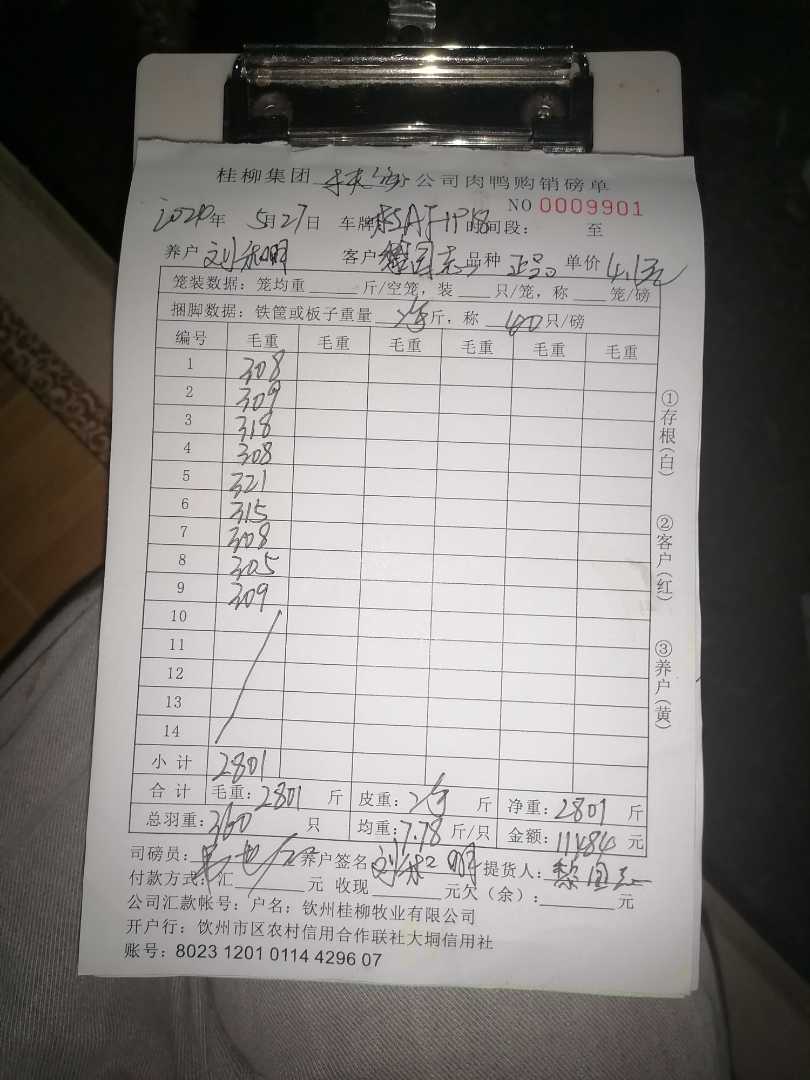 桂柳集团 公司肉鸭购销磅单
NO 0009901
2020年 5月27日 车牌 时间段： 至
养户 刘 明 客户 品种 正品 单价 4.1元
笼装数据：笼均重 斤/空笼，装 只/笼，称 笼/磅
捆脚数据：铁筐或板子重量 斤，称 40 只/磅
编号 毛重 毛重 毛重 毛重 毛重 毛重
1 308
2 309
3 318
4 308
5 321
6 315
7 308
8 305
9 309
10
11
12
13
14
小计 2801
合计 毛重：2801 斤 皮重： 斤 净重：2801 斤
总羽重：360 只 均重：7.78 斤/只 金额：11484 元
司磅员： 养户签名 刘 明 提货人：
付款方式：汇 元 收现 元欠（余）： 元
公司汇款帐号：户名：钦州桂柳牧业有限公司
开户行：钦州市区农村信用合作联社大垌信用社
账号：8023 1201 0114 4296 07
①存根（白）
②客户（红）
③养户（黄）